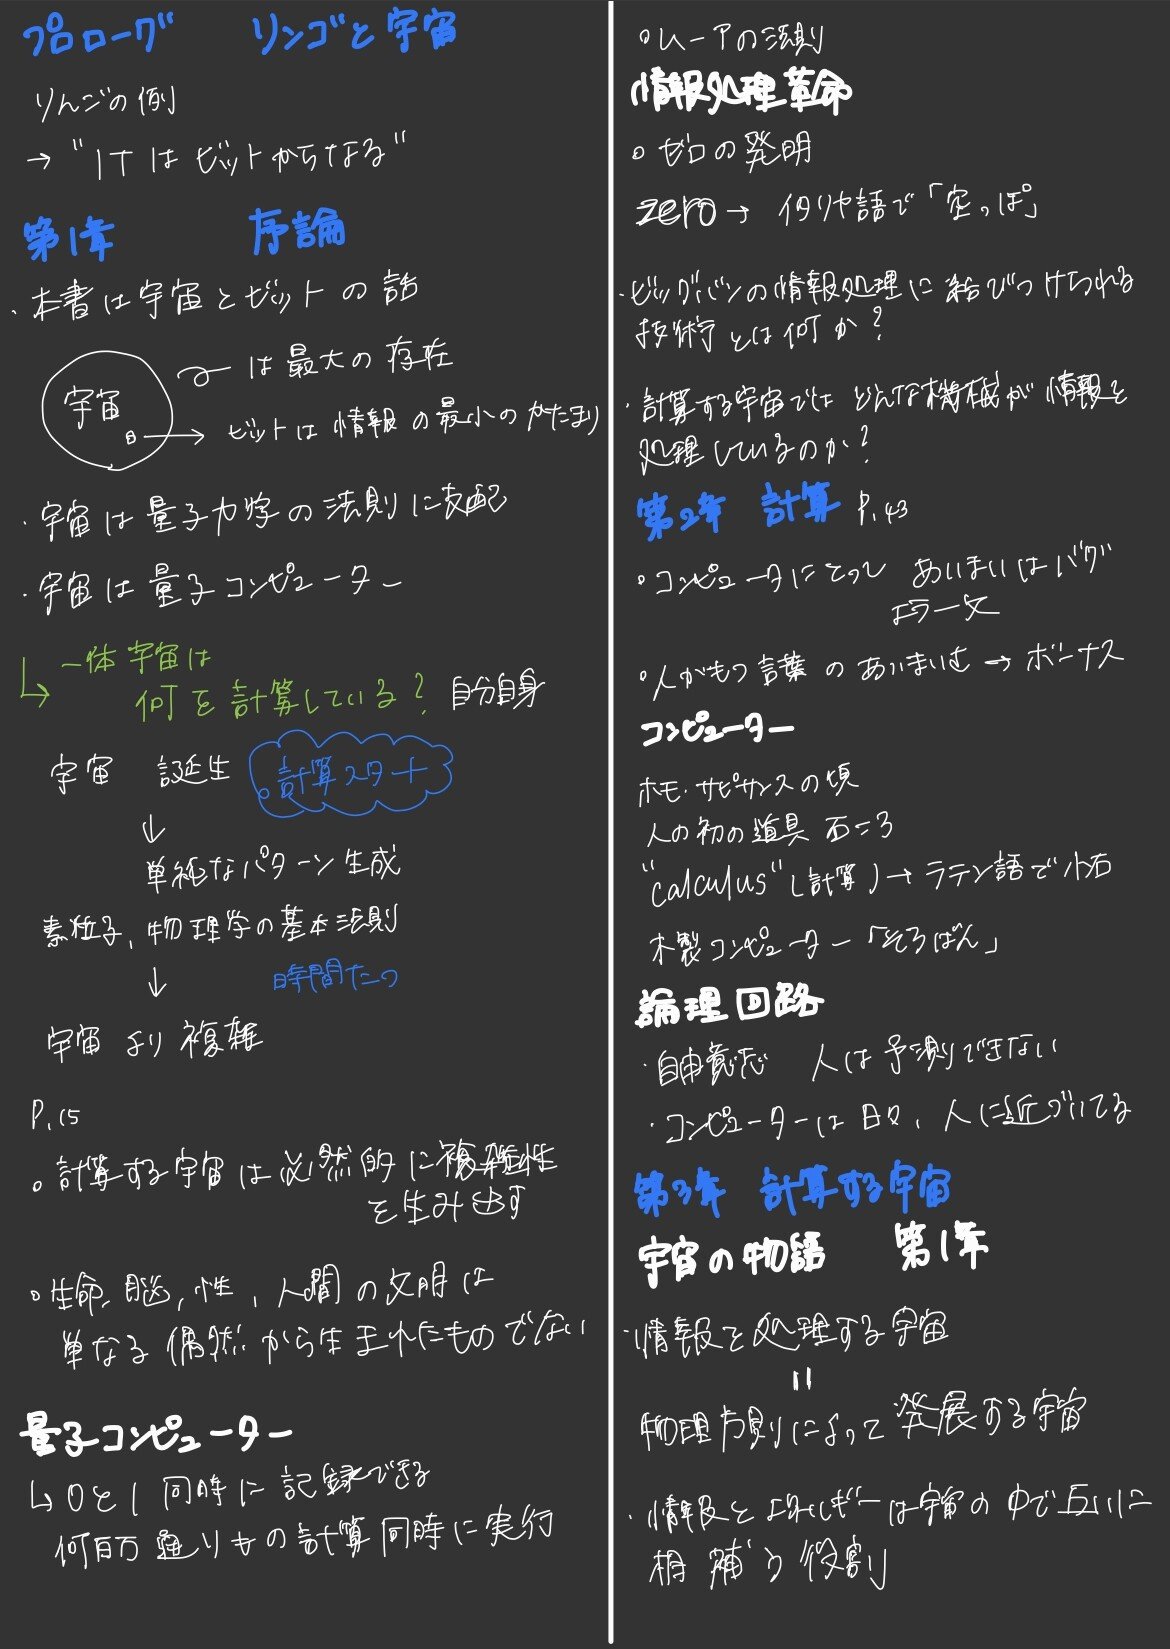 プロローグ　リンゴと宇宙
りんごの例
→ "ITはビットからなる"
第1章　序論
・本書は宇宙とビットの話
宇宙 は最大の存在
→ ビットは情報の最小のかたまり
・宇宙は量子力学の法則に支配
・宇宙は量子コンピューター
↳ 一体宇宙は
何を計算している? 自分自身
宇宙　誕生　計算スタート
↓
単純なパターン生成
素粒子、物理学の基本法則
↓　時間たつ
宇宙 より 複雑
P.15
○計算する宇宙は必然的に複雑性
を生み出す
○生命、脳、性、人間の文明は
単なる偶然から生まれたものでない
量子コンピューター
↳ 0と1 同時に記録できる
何百万通りもの計算同時に実行
○ムーアの法則
情報処理革命
○ゼロの発明
zero → イタリヤ語で「空っぽ」
・ビッグバンの情報処理に結びつけられる
技術とは何か?
・計算する宇宙ではどんな機械が情報を
処理しているのか?
第2章　計算 P.43
○コンピュータにとって あいまいはバグ
エラー
○人がもつ言葉のあいまいさ → ボーナス
コンピューター
ホモ・サピサンスの頃
人の初の道具 石ころ
"calculus"(計算) → ラテン語で小石
木製コンピューター「そろばん」
論理回路
・自由意志　人は予測できない
・コンピューターは日々、人に近づいてる
第3章　計算する宇宙
宇宙の物語　第1章
・情報を処理する宇宙
=
物理法則によって発展する宇宙
・情報とエネルギーは宇宙の中で互いに
相補う役割